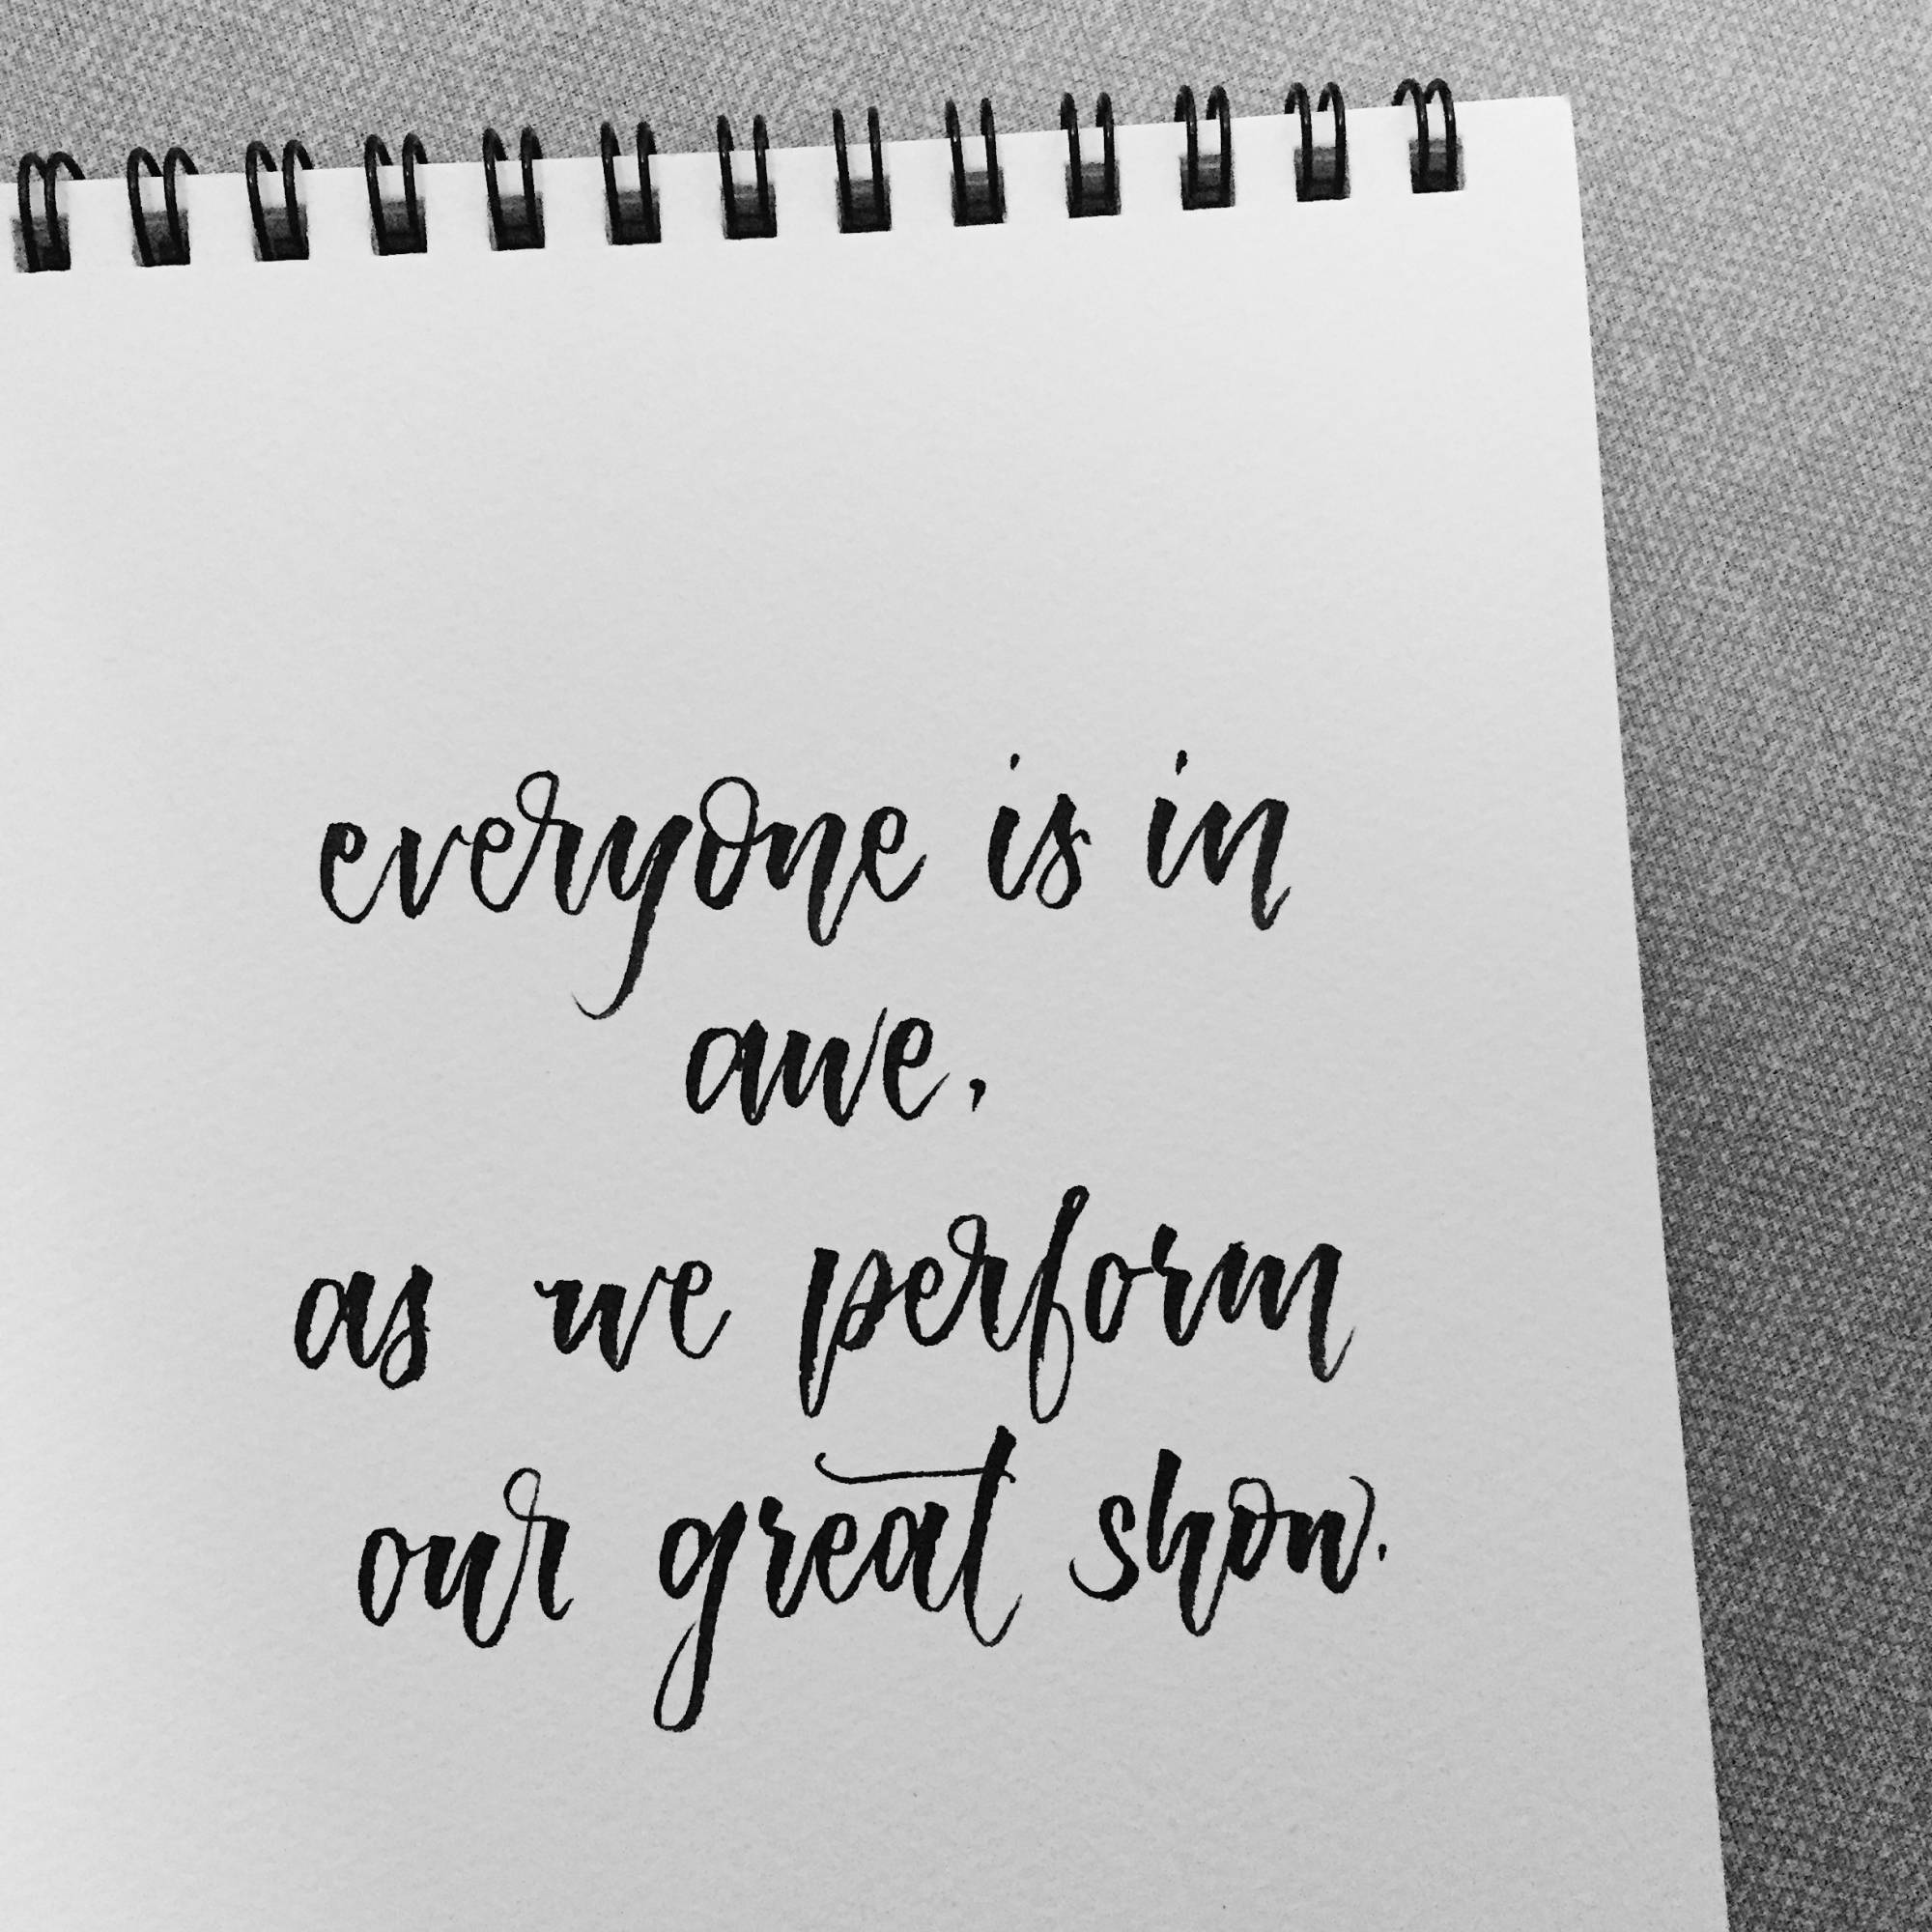 everyone is in
awe,
as we perform
our great show.